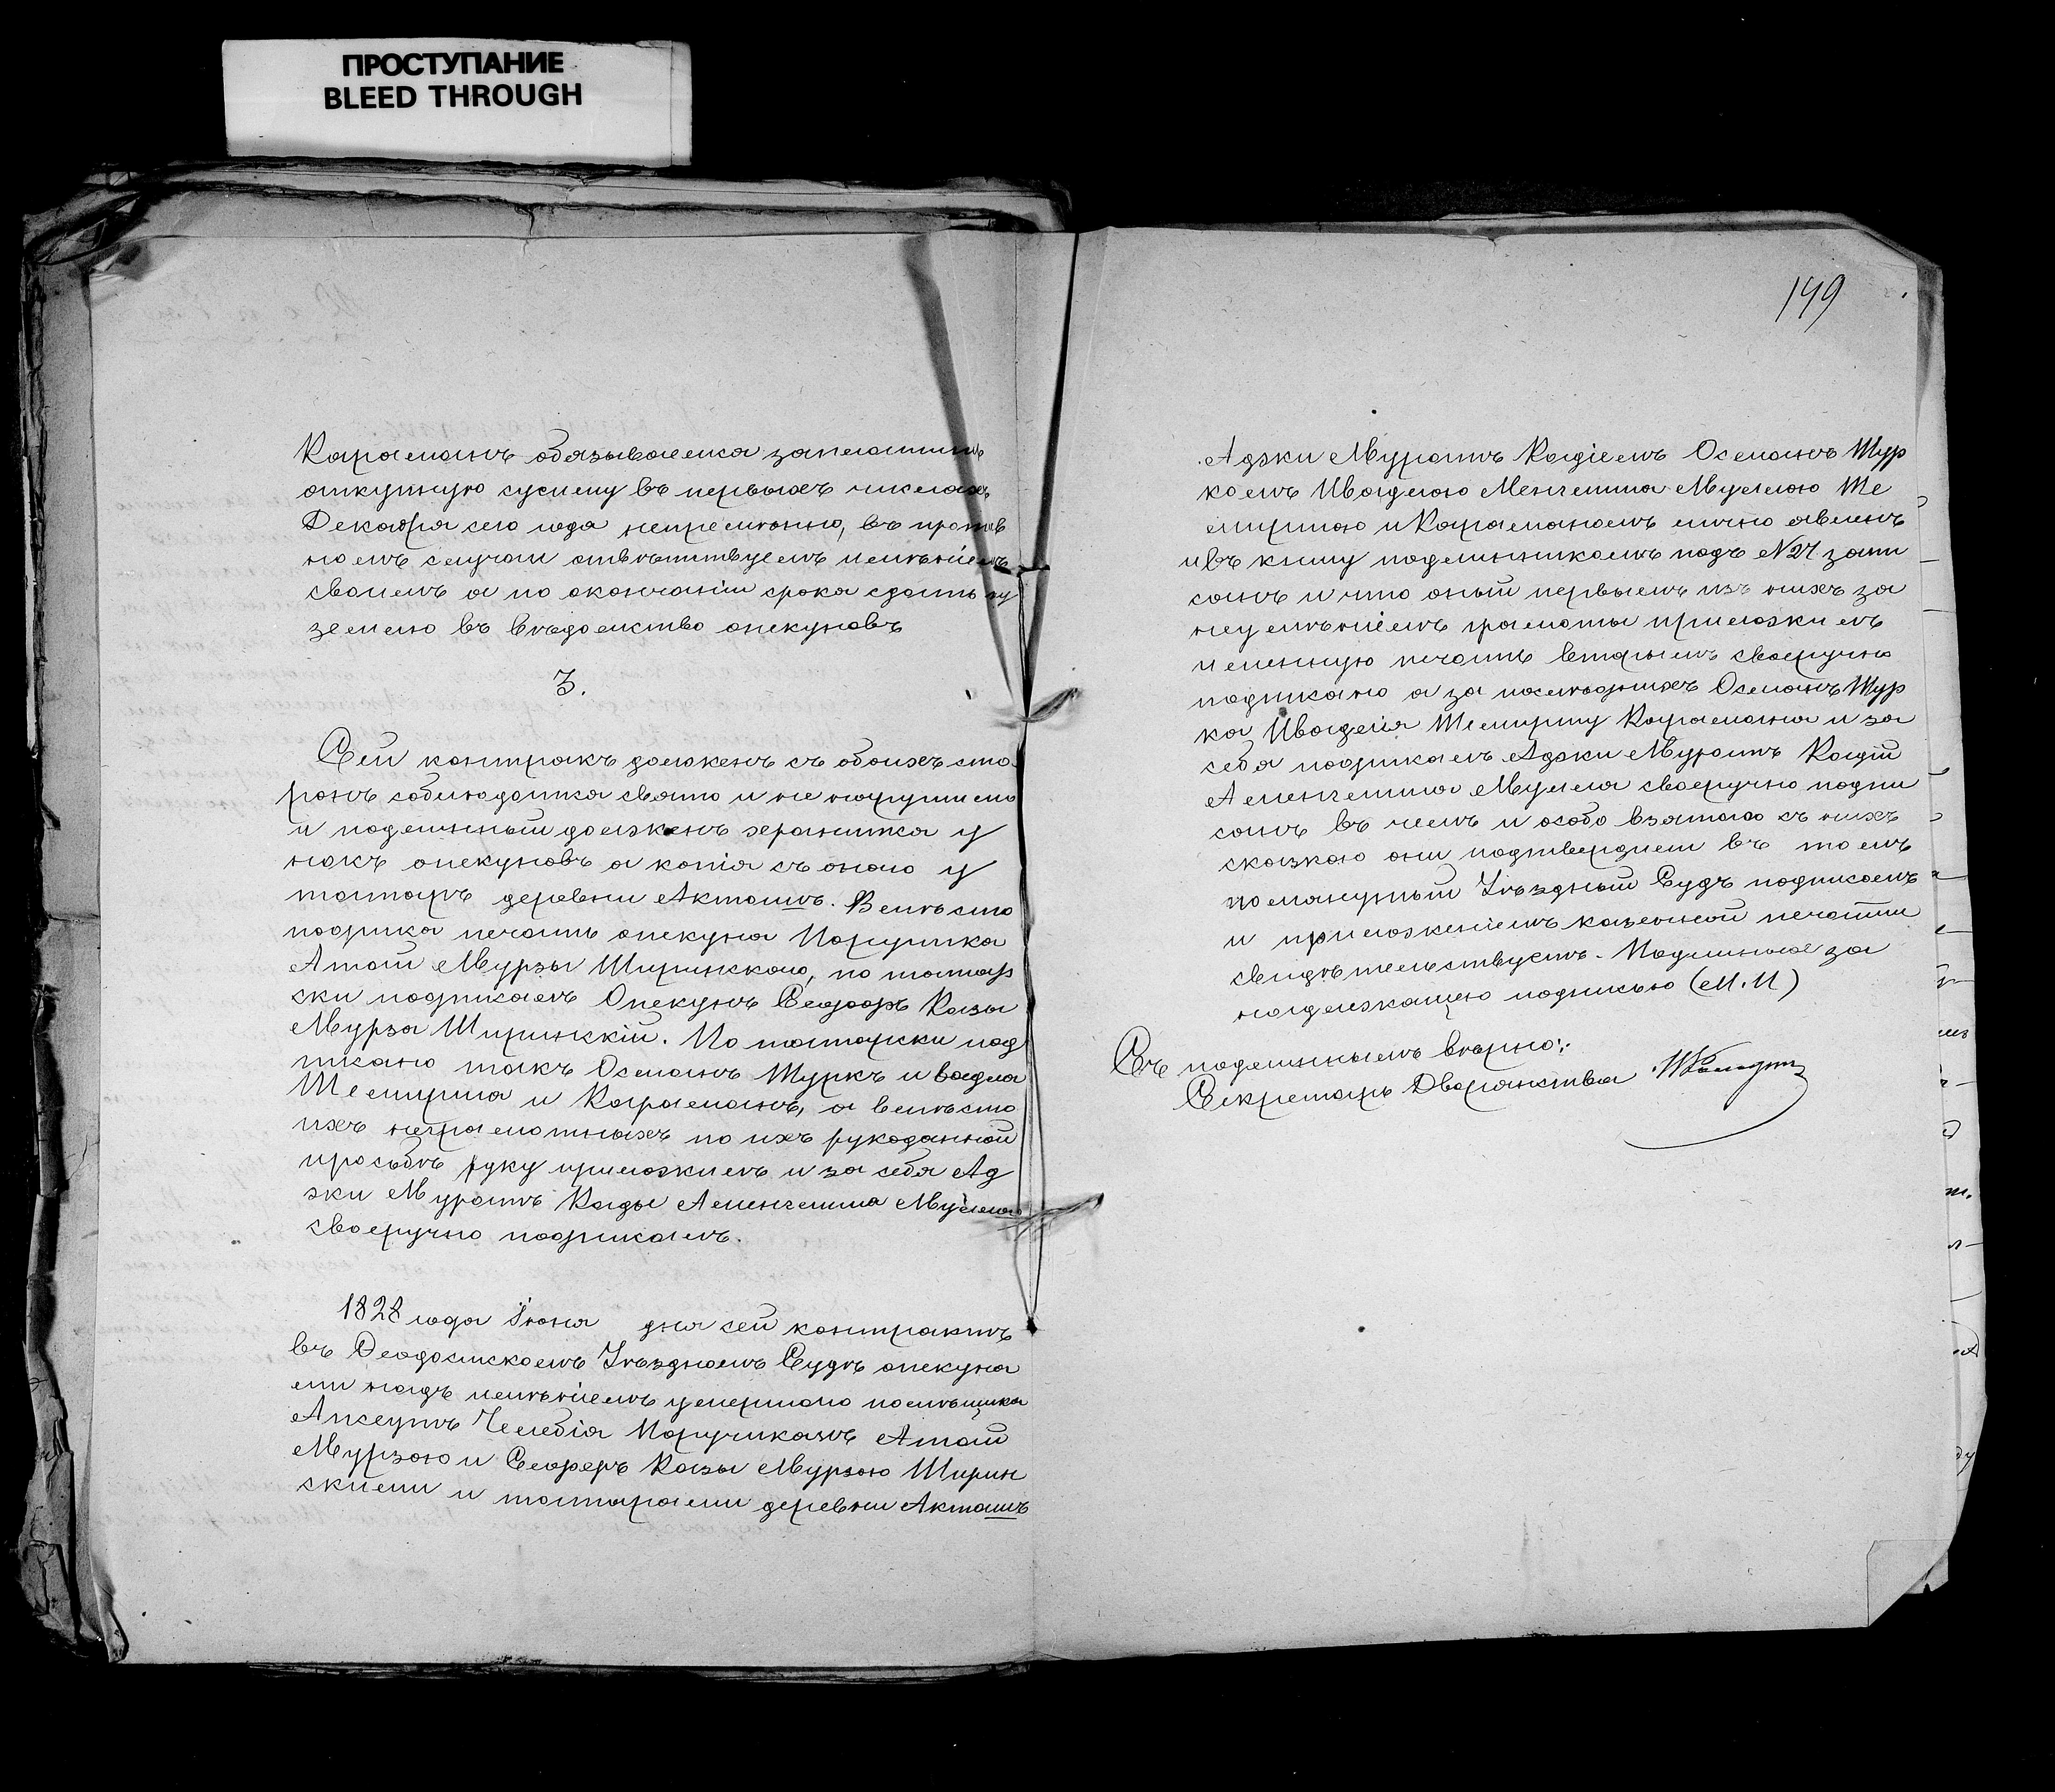 ПРОСТУПАНИЕ
BLEED THROUGH
Караманъ обязывается заплатить
откупную сумму въ первыхъ числахъ
Декабря сего года непремѣнно, въ против
номъ случаи отвѣтствуемъ имѣніемъ
своимъ а по окончаніи срока сдать ту
землю въ вѣдомство опекуновъ
3.
Сей контрактъ долженъ съ обоихъ сто
ронъ соблюдатса свято и не нарушимо
и подлинный долженъ хранитса у
насъ опекуновъ а копія съ оного у
татаръ деревни Акташъ. Вмѣсто
подписа печать опекуна Порутчика
Атай Мурзы Ширинского, по татар
ски подписалъ Опекунъ Сеферъ Казы
Мурза Ширинскій. По татарски под
писано такъ Османъ Туркъ Ивадла
Темирша и Караманъ, а вмѣсто
ихъ неграмотныхъ по ихъ рукоданной
просьбѣ руку приложилъ и за себя Ад
жи Муратъ Кады Аменгелша Мулла
своеручно подписалъ.
1828 года Іюня дня сей контрактъ
въ Феодосискомъ Уѣздномъ Судѣ опекуна
ми надъ имѣніемъ умершого помѣщика
Апсеутъ Челебія Поручикомъ Атай
Мурзою и Сеферъ Казы Мурзою Ширин
скими и татарами деревни Акташъ
149
Аджи Муратъ Кадіемъ Османъ Тур
комъ Ивадлою Менгелша Муллою Те
миршою и Караманомъ лично явленъ
и въ книгу подлинникомъ подъ №27 запи
санъ и что оный первымъ изъ нихъ за
неумѣніемъ грамоты приложилъ
именную печать вторымъ своеручно
подписано а за послѣднихъ Османъ Тур
ка Ивадлія Темиршу Карамана и за
себя подписалъ Аджи Муратъ Кадій
Аменгелша Мулла своеручно подпи
санъ въ чемъ и особо взятою съ нихъ
сказкою они подтвердили въ томъ
помянутый Уѣздный Судъ подписомъ
и приложеніемъ казенной печати
свидѣтельствуетъ. Подлинное за
надлежащею подписью (М.П)
Съ подлиннымъ вѣрно:
Секретарь Дворянства